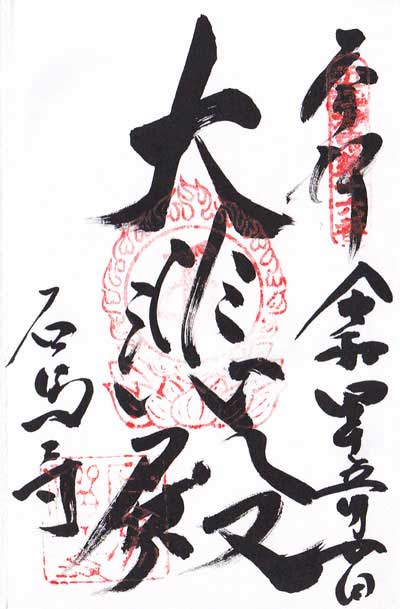 奉拝
令和四年五月廿日
大悲殿
石馬寺